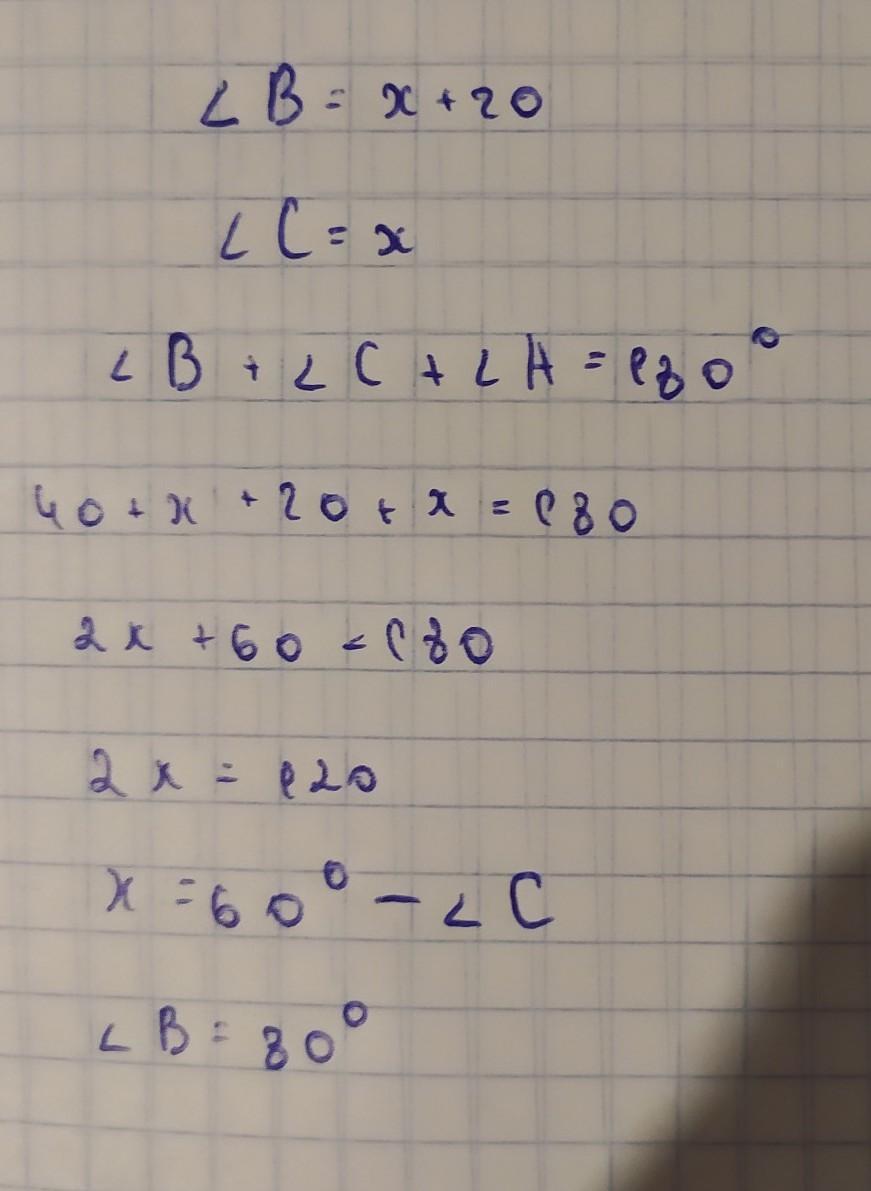 ∠B = x + 20
∠C = x
∠B + ∠C + ∠A = 180°
40 + x + 20 + x = 180
2x + 60 = 180
2x = 120
x = 60° – ∠C
∠B = 80°